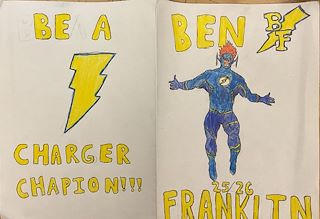 BE A
CHARGER
CHAPION!!!
BEN
BF
25/26
FRANKLIN